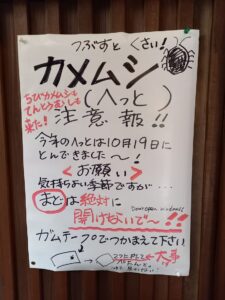 つぶすと くさい!
カメムシ
ちびカメムシも
てんとうむしも
来た!
(へっと)
注意報!!
今年のへっとは10月19日に
とんできました〜!
<お願い>
気持ちよい季節ですが…
まどは絶対に
Don't open windows!
開けないで〜!!
ガムテープでつかまえて下さい
大事